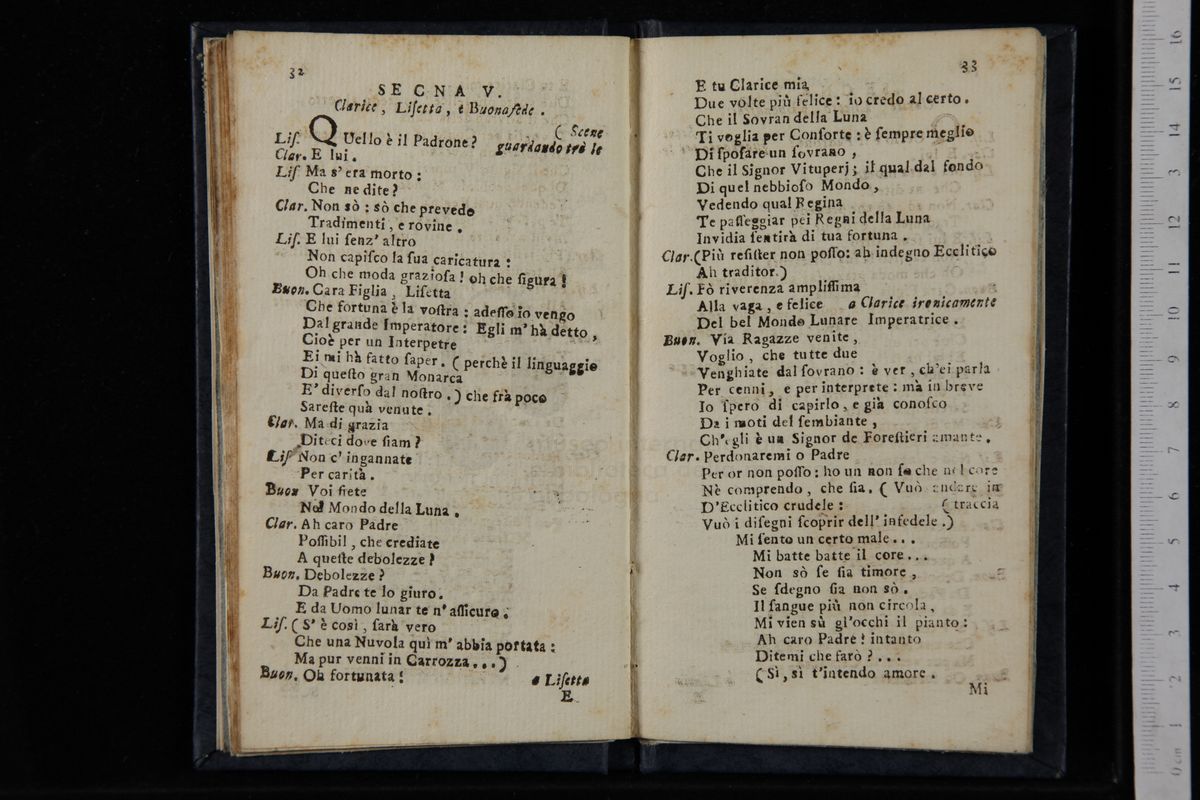 32
SECNA V.
Clarice, Liſetta, e Buonafede.
Liſ. QUello è il Padrone? ( Scene
Clar. E lui. guardando trà le
Liſ Ma s'era morto:
Che ne dite?
Clar. Non sò; sò che prevedo
Tradimenti, e rovine.
Liſ. E lui ſenz' altro
Non capiſco la ſua caricatura:
Oh che moda grazioſa! oh che figura!
Buon. Cara Figlia, Liſetta
Che fortuna è la voſtra: adeſſo io vengo
Dal grande Imperatore: Egli m' hà detto,
Cioè per un Interpetre
Ei mi hà fatto ſaper. ( perchè il linguaggio
Di queſto gran Monarca
E' diverſo dal noſtro.) che frà poco
Sareſte quà venute.
Clar. Ma di grazia
Diteci dove ſiam?
Liſ Non c' ingannate
Per carità.
Buon Voi ſiete
Nel Mondo della Luna.
Clar. Ah caro Padre
Poſſibil, che crediate
A queſte debolezze?
Buon. Debolezze?
Da Padre te lo giuro.
E da Uomo lunar te n' aſſicuro.
Liſ. ( S' è così, ſarà vero
Che una Nuvola quì m' abbia portata:
Ma pur venni in Carrozza...)
Buon. Oh fortunata! a Liſetta
E
33
E tu Clarice mia
Due volte più felice: io credo al certo.
Che il Sovran della Luna
Ti voglia per Conſorte: è ſempre meglio
Di ſpoſare un ſovrano,
Che il Signor Vituperj; il qual dal fondo
Di quel nebbioſo Mondo,
Vedendo qual Regina
Te paſſeggiar pei Regni della Luna
Invidia ſentirà di tua fortuna.
Clar. (Più reſiſter non poſſo: ah indegno Ecclitico
Ah traditor.)
Liſ. Fò riverenza ampliſſima
Alla vaga, e felice a Clarice ironicamente
Del bel Mondo Lunare Imperatrice.
Buon. Via Ragazze venite,
Voglio, che tutte due
Venghiate dal ſovrano: è ver, ch'ei parla
Per cenni, e per interprete: mà in breve
Io ſpero di capirlo, e già conoſco
Da i moti del ſembiante,
Ch'egli è un Signor de Foreſtieri amante.
Clar. Perdonaremi o Padre
Per or non poſſo: ho un non ſo che nel core
Nè comprendo, che ſia. ( Vuò andare in
D'Ecclitico crudele: ( traccia
Vuò i diſegni ſcoprir dell' infedele.)
Mi ſento un certo male...
Mi batte batte il core...
Non sò ſe ſia timore,
Se ſdegno ſia non sò.
Il ſangue più non circola,
Mi vien sù gl'occhi il pianto:
Ah caro Padre! intanto
Ditemi che farò?...
(Sì, sì t'intendo amore.
Mi